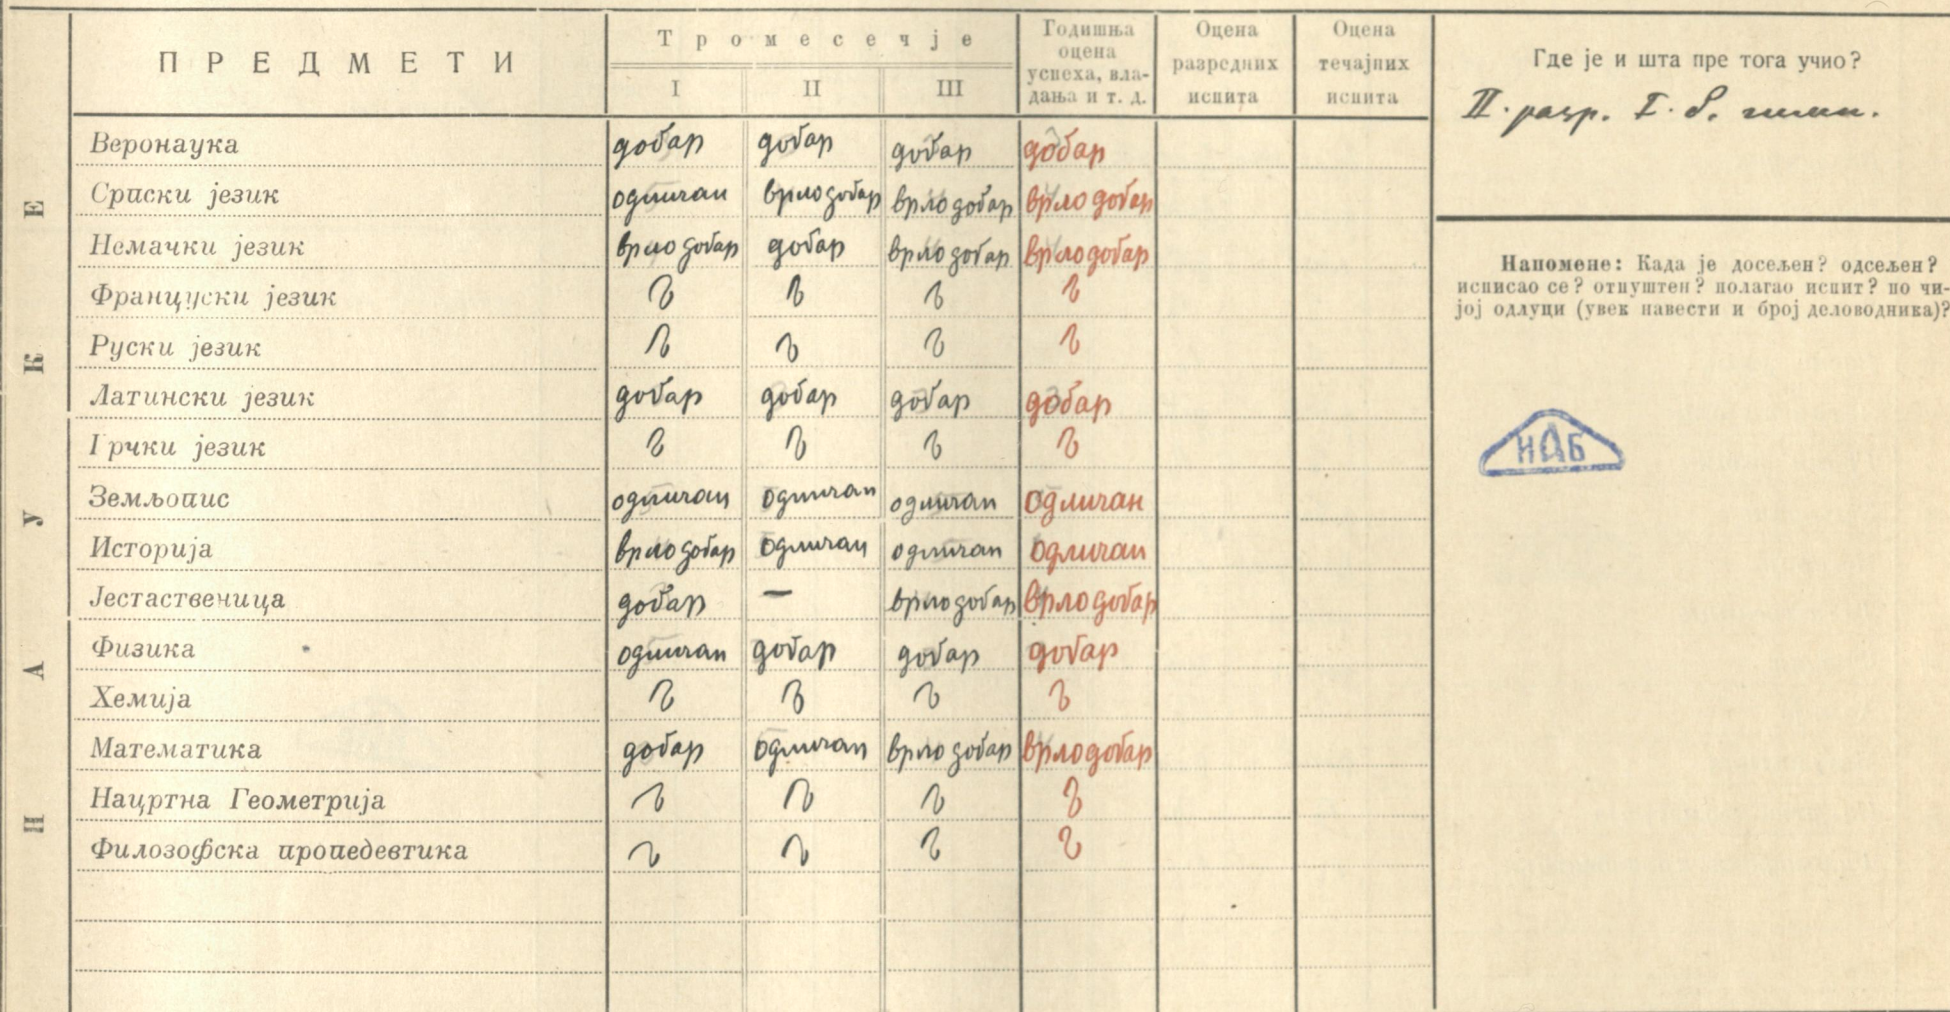 НАУКЕ
ПРЕДМЕТИ
Тромесечје
I II III
Годишња оцена успеха, вла-дања и т. д.
Оцена разредних испита
Оцена течајних испита
Где је и шта пре тога учио?
II. разр. I. б. гимн.
Веронаука добар добар добар добар
Српски језик одличан врло добар врло добар врло добар
Немачки језик врло добар добар врло добар врло добар
Француски језик
Руски језик
Латински језик добар добар добар добар
Грчки језик
Земљопис одличан одличан одличан одличан
Историја врло добар одличан одличан одличан
Јестаственица добар — врло добар врло добар
Физика одличан добар добар добар
Хемија
Математика добар одличан врло добар врло добар
Нацртна Геометрија
Филозофска пропедевтика
Напомене: Када је досељен? одсељен?
исписао се? отпуштен? полагао испит? по чи-
јој одлуци (увек навести и број деловодника)?
ИАБ